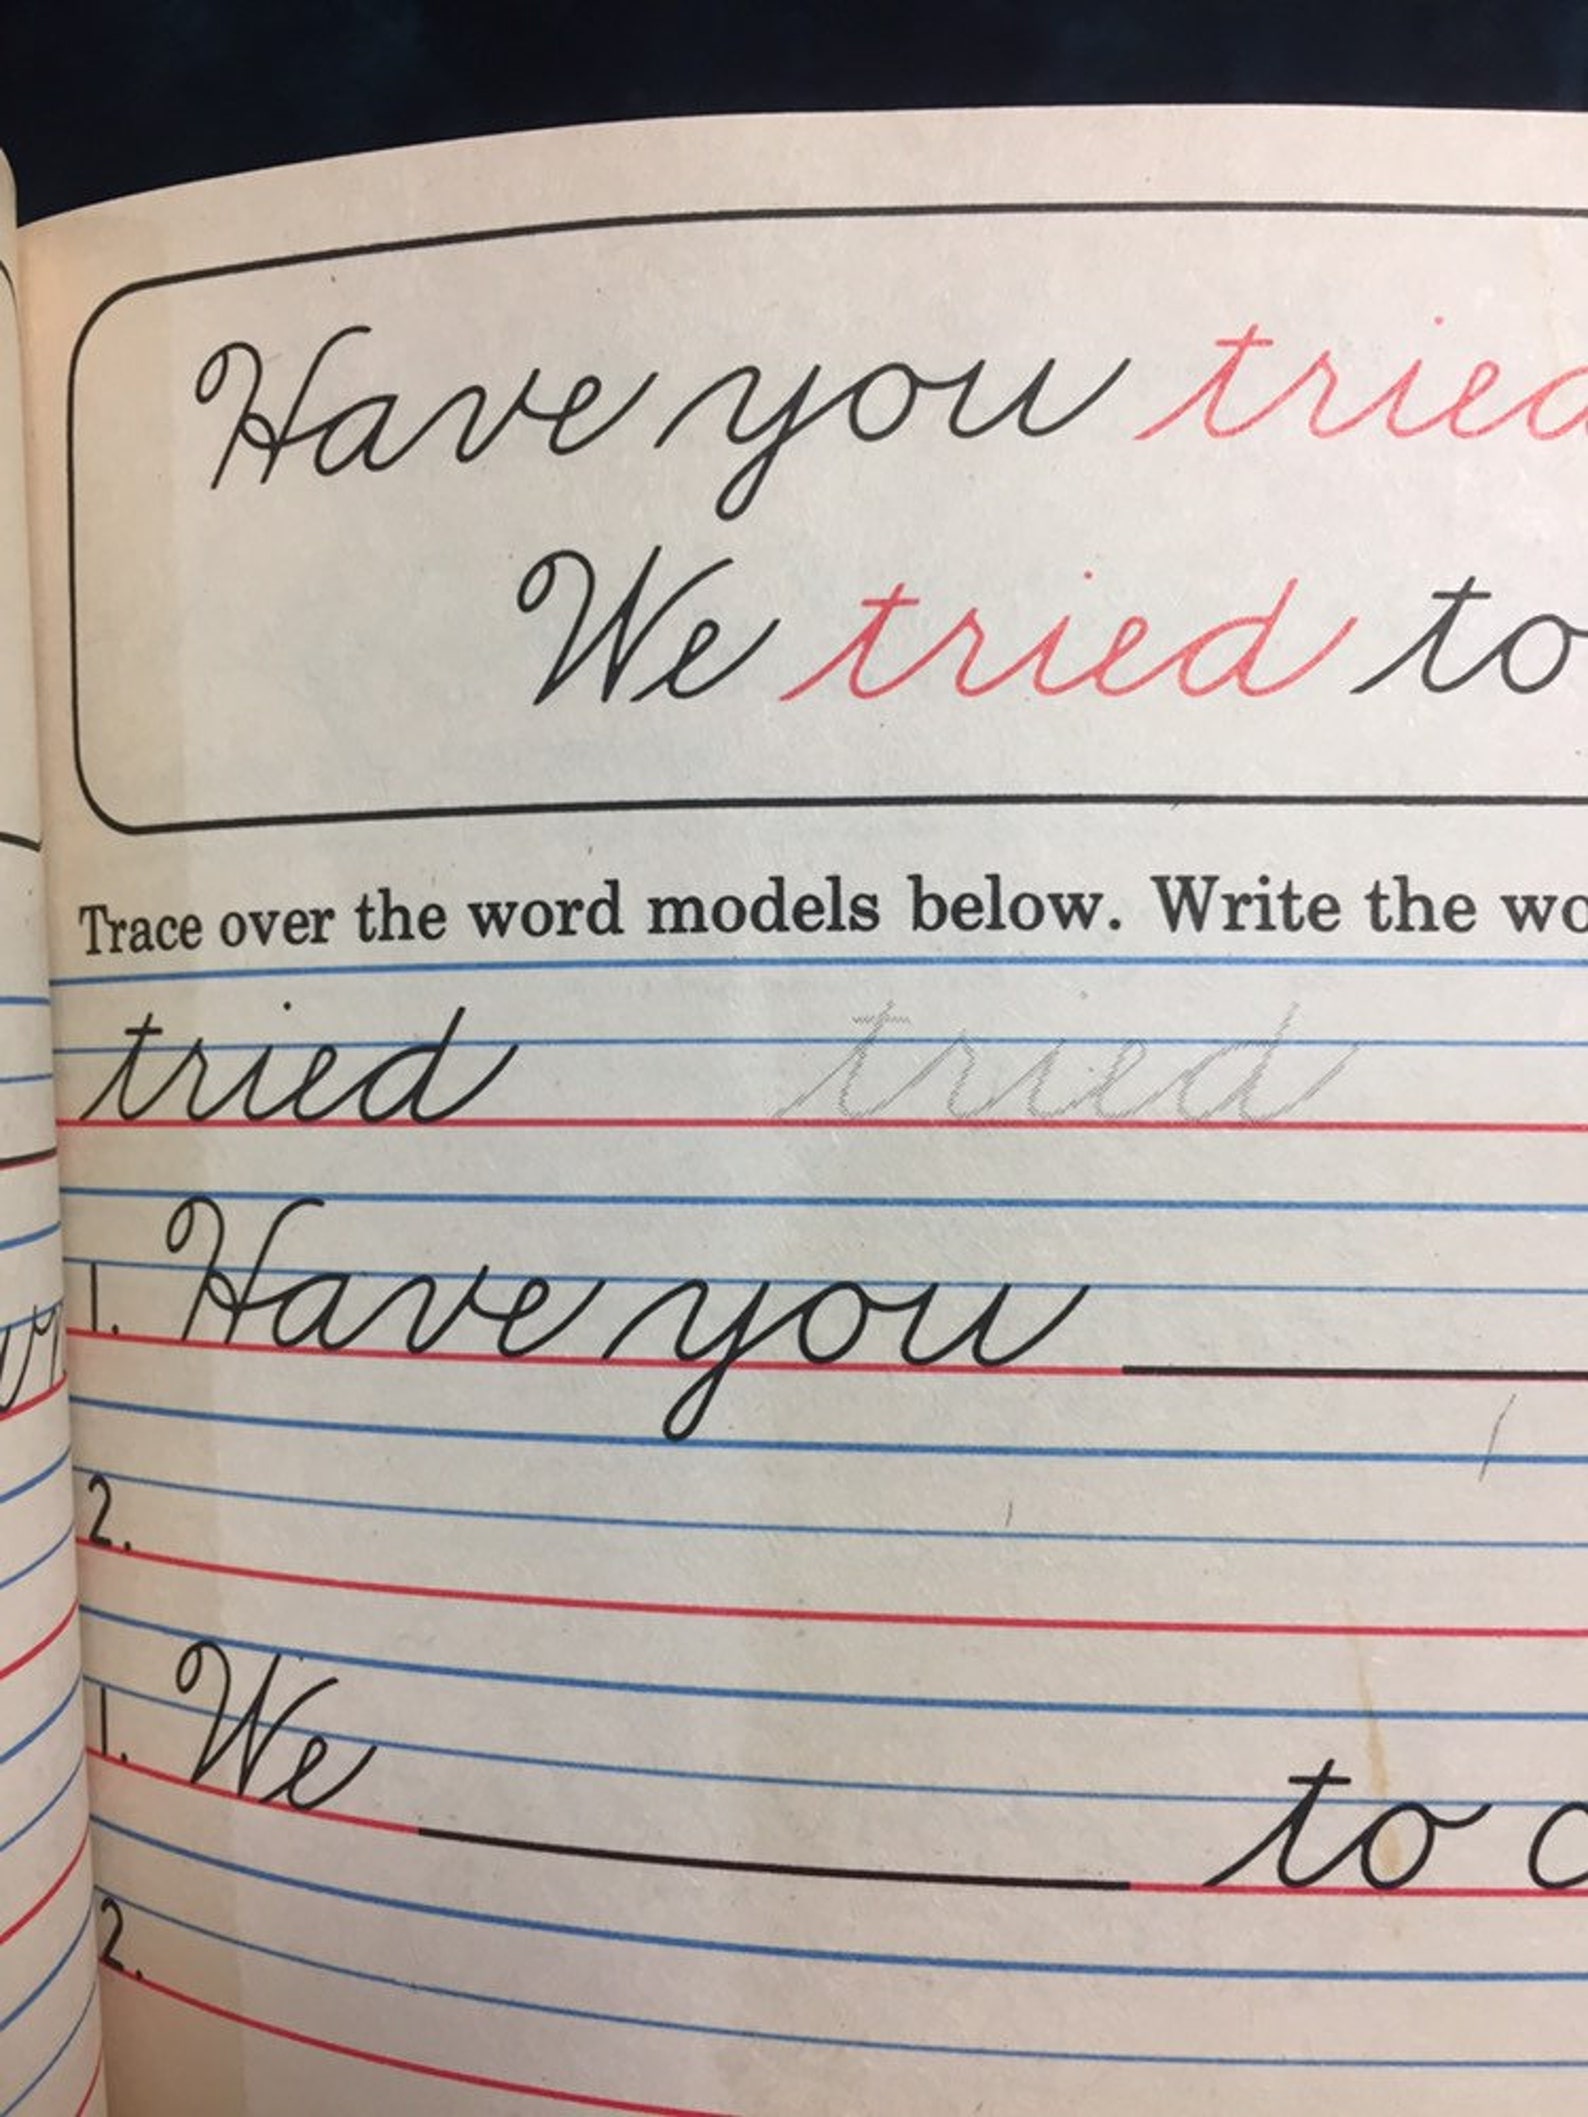 Have you tried
We tried to
Trace over the word models below. Write the
tried tried
1. Have you
2.
1. We to
2.